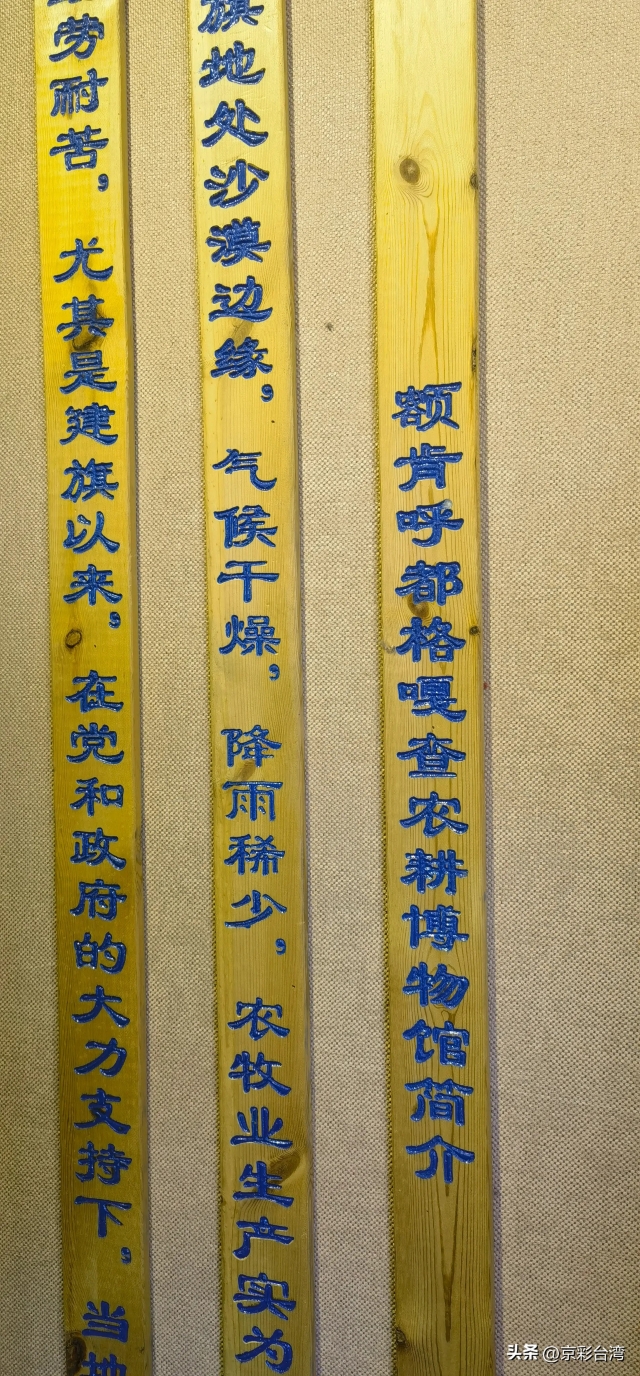 额肯呼都格嘎查农耕博物馆简介
旗地处沙漠边缘，气候干燥，降雨稀少，农牧业生产实为
劳耐苦，尤其是建旗以来，在党和政府的大力支持下，当地
头条 @京彩台湾